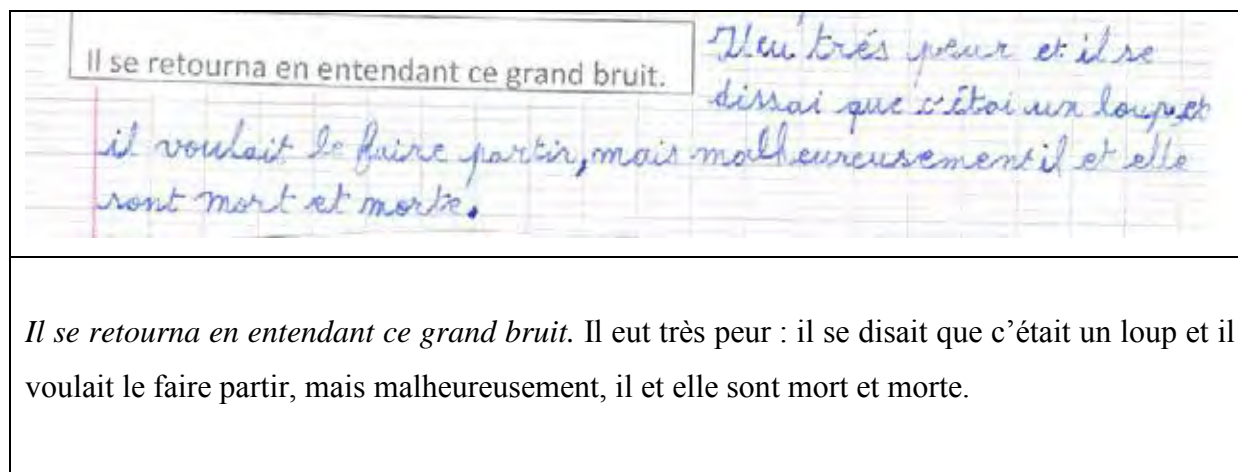 Il se retourna en entendant ce grand bruit.
Il eu trés peur et il se
dissai que c'étoi un loup et
il voulait le faire partir, mais malheureusement il et elle
sont mort et morte.
Il se retourna en entendant ce grand bruit. Il eut très peur : il se disait que c’était un loup et il
voulait le faire partir, mais malheureusement, il et elle sont mort et morte.